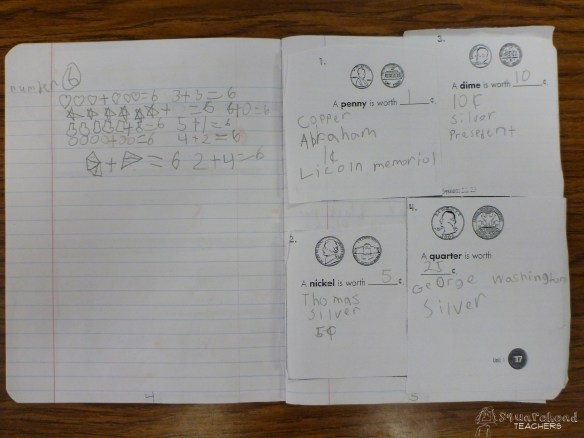 number 6
+ =6 3+3=6
+ =6 6+0=6
+ =6 5+1=6
+ =6 4+2=6
+ =6 2+4=6
4
1.
A penny is worth 1 ¢.
Copper
Abraham
1¢
Licoln memorial
2.
A dime is worth 10 ¢.
10¢
Silver
President
3.
A nickel is worth 5 ¢.
Thomas
Silver
5¢
4.
A quarter is worth
25 ¢.
George Washington
Silver
17
5
Squarehead
TEACHERS